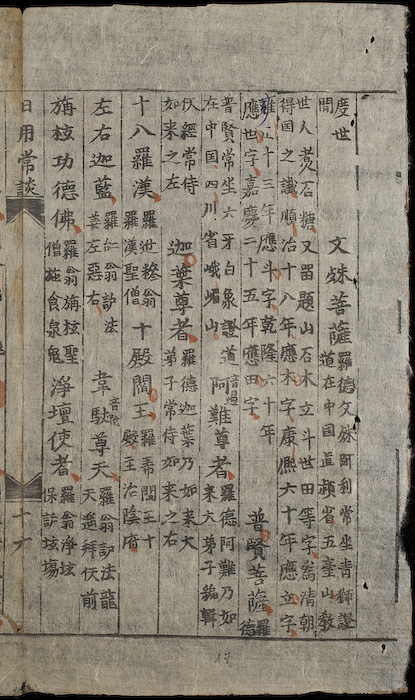 度世
間
文殊菩薩
羅德文殊師利常坐青獅證
道在中国直省五臺山教
世人煑石糖又留題山石木立斗世田等字爲清朝
得国之識順治十八年應木字康熙六十年應立字
雍正十三年應斗字乾隆六十年
應世字嘉慶二十五年應田字
普賢菩薩
羅
德
普賢常坐六牙白象證道
在中国四川省峨嵋山
阿難尊者
羅德阿難乃如
来大弟子編輯
伏經常侍
如来之左
迦葉尊者
羅德迦葉乃如来大
弟子常侍如来之右
十八羅漢
羅翁
羅漢聖僧
十殿閻王
羅閻王十
殿王治陰府
左右迦藍
羅翁訪法
善左惡右
韋馱尊天
羅翁訪法龍
天遥拜伏前
旃核功德佛
羅翁旃核聖
僧施食鬼
淨壇使者
羅翁淨垓
保訪垓場
日用常談
十六